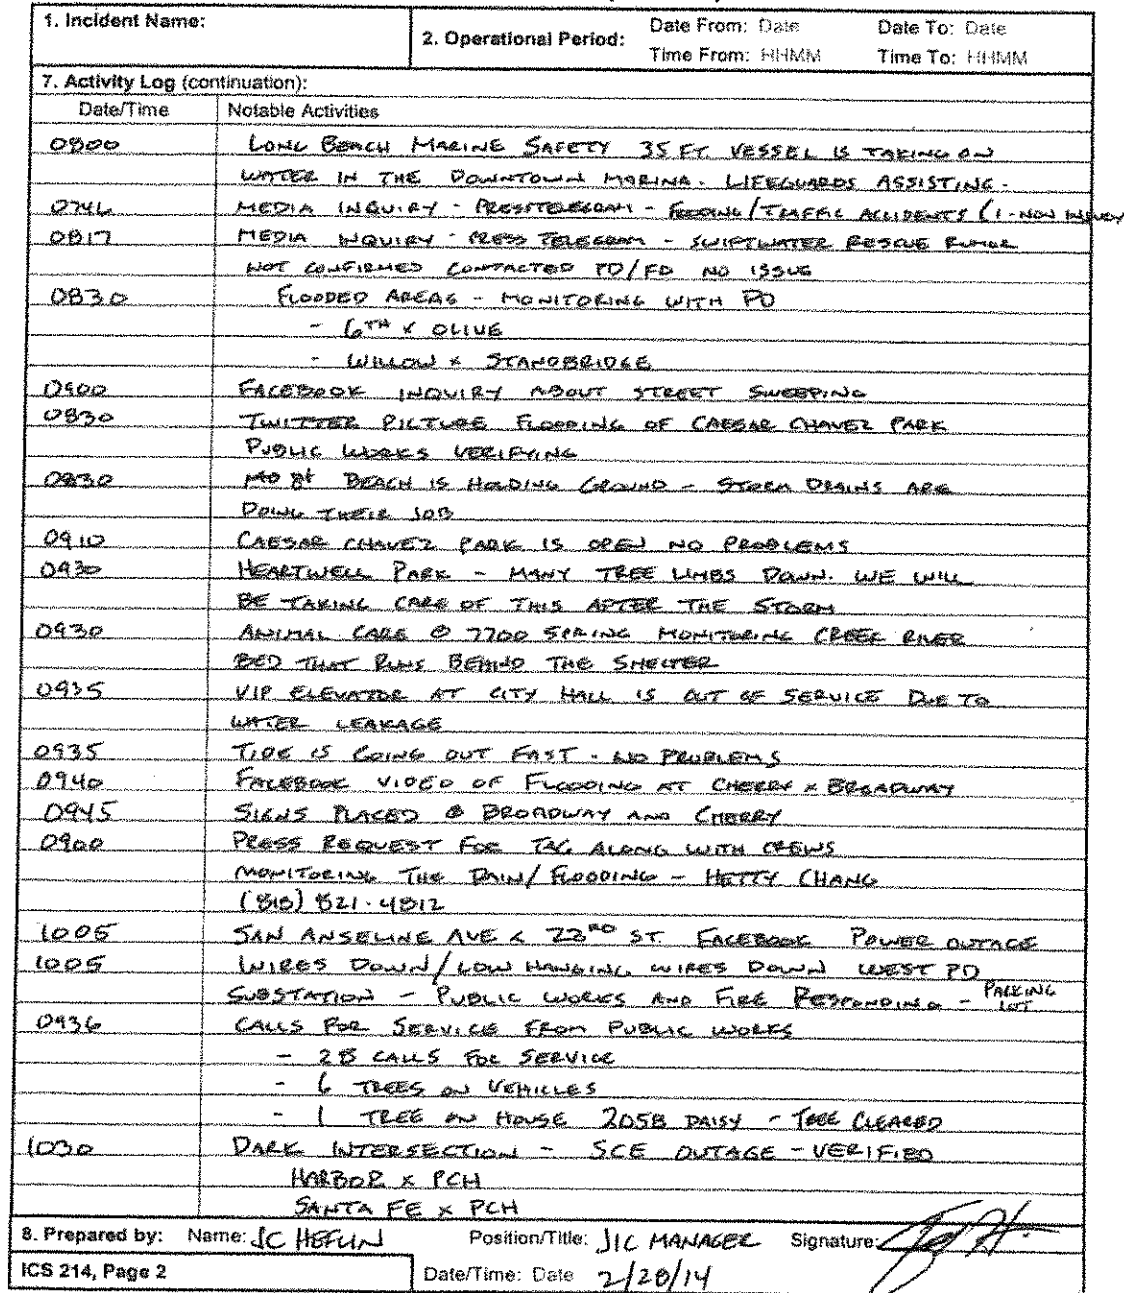 1. Incident Name:
2. Operational Period:
Date From: Date
Date To: Date
Time From: HHMM
Time To: HHMM
7. Activity Log (continuation):
Date/Time Notable Activities
0800 LONG BEACH MARINE SAFETY 35 FT. VESSEL IS TAKING ON
WATER IN THE DOWNTOWN MARINA. LIFEGUARDS ASSISTING.
0746 MEDIA INQUIRY - PRESSTELEGRAM - FLOODING/TRAFFIC ACCIDENTS (1-NON INJURY
0817 MEDIA INQUIRY - PRESS TELEGRAM - SWIFTWATER RESCUE RUMOR
NOT CONFIRMED CONTACTED PD/FD NO ISSUE
0830 FLOODED AREAS - MONITORING WITH PD
- 6TH x OLIVE
- WILLOW x STANDBRIDGE
0900 FACEBOOK INQUIRY ABOUT STREET SWEEPING
0830 TWITTER PICTURE FLOODING OF CAESAR CHAVEZ PARK
PUBLIC WORKS VERIFYING
0830 BEACH IS HOLDING GROUND - STORM DRAINS ARE
DOING THEIR JOB
0910 CAESAR CHAVEZ PARK IS OPEN NO PROBLEMS
0930 HEARTWELL PARK - MANY TREE LIMBS DOWN. WE WILL
BE TAKING CARE OF THIS AFTER THE STORM
0930 ANIMAL CARE @ 7700 SPRING MONITORING CREEK RIVER
BED THAT RUNS BEHIND THE SHELTER
0935 VIP ELEVATOR AT CITY HALL IS OUT OF SERVICE DUE TO
WATER LEAKAGE
0935 TIDE IS GOING OUT FAST - NO PROBLEMS
0940 FACEBOOK VIDEO OF FLOODING AT CHERRY x BROADWAY
0945 SIGNS PLACED @ BROADWAY AND CHERRY
0900 PRESS REQUEST FOR TAG ALONG WITH CREWS
MONITORING THE RAIN/FLOODING - HETTY CHANG
(818) 821-4812
1005 SAN ANSELINE AVE & 23RD ST. FACEBOOK POWER OUTAGE
1005 WIRES DOWN/LOW HANGING WIRES DOWN WEST PD
SUBSTATION - PUBLIC WORKS AND FIRE RESPONDING - PARKING LOT
0936 CALLS FOR SERVICE FROM PUBLIC WORKS
- 28 CALLS FOR SERVICE
- 6 TREES ON VEHICLES
- 1 TREE ON HOUSE 2058 DAISY - TREE CLEARED
1030 DARK INTERSECTION - SCE OUTAGE - VERIFIED
HARBOR x PCH
SANTA FE x PCH
8. Prepared by: Name: JC HEFLIN Position/Title: JIC MANAGER Signature:
ICS 214, Page 2 Date/Time: Date 2/28/14